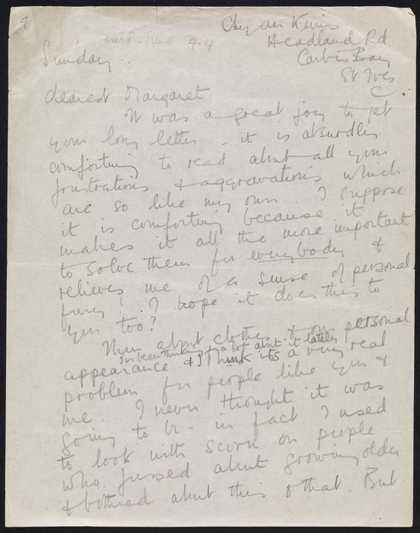 Chy an Kerris
Headland Rd
Carbis Bay
St Ives
Sunday.
dearest Margaret
It was a great joy to get
your long letter - it is absurdly
comforting to read about all your
frustrations & aggravations which
are so like my own. I suppose
it is comforting because it
makes it all the more important
to solve them for everybody &
relieves me of a sense of personal
fury! I hope it does this to
you too?
Then about clothes & one's personal
I've been thinking a lot about it lately
appearance & I think it's a very real
problem for people like you &
me. I never thought it was
going to be - in fact I used
to look with scorn on people
who fussed about growing older
& bothered about this & that. But